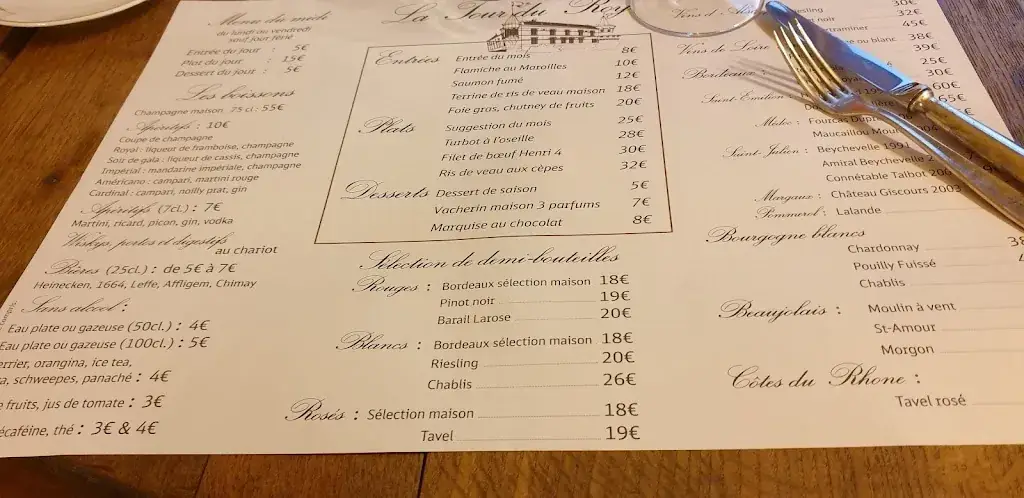 La Tour du Roy
Menu du midi
du lundi au vendredi
sauf jour férié
Entrée du jour : 5€
Plat du jour : 15€
Dessert du jour : 5€
Les boissons
Champagne maison 75 cl : 55€
Apéritifs : 10€
Coupe de champagne
Royal : liqueur de framboise, champagne
Soir de gala : liqueur de cassis, champagne
Impérial : mandarine impériale, champagne
Américano : campari, martini rouge
Cardinal : campari, noilly prat, gin
Apéritifs (7cl.) : 7€
Martini, ricard, picon, gin, vodka
Whiskys, portos et digestifs
au chariot
Bières (25cl.) : de 5€ à 7€
Heinecken, 1664, Leffe, Affligem, Chimay
Sans alcool :
Eau plate ou gazeuse (50cl.) : 4€
Eau plate ou gazeuse (100cl.) : 5€
orangina, ice tea,
schweepes, panaché : 4€
fruits, jus de tomate : 3€
thé : 3€ & 4€
Entrées
Entrée du mois 8€
Flamiche au Maroilles 10€
Saumon fumé 12€
Terrine de ris de veau maison 18€
Foie gras, chutney de fruits 20€
Plats
Suggestion du mois 25€
Turbot à l'oseille 28€
Filet de bœuf Henri 4 30€
Ris de veau aux cèpes 32€
Desserts
Dessert de saison 5€
Vacherin maison 3 parfums 7€
Marquise au chocolat 8€
Sélection de demi-bouteilles
Rouges : Bordeaux sélection maison 18€
Pinot noir 19€
Barail Larose 20€
Blancs : Bordeaux sélection maison 18€
Riesling 20€
Chablis 26€
Rosés : Sélection maison 18€
Tavel 19€
Vins d'
30€
noir 32€
45€
Vins de Loire
ou blanc 38€
39€
Bordeaux :
25€
30€
Saint-Emilion
60€
65€
Médoc :
Fourcas
Maucaillou
Saint-Julien : Beychevelle 1991
Amiral Beychevelle
Connétable Talbot
Margaux : Château Giscours 2003
Pommerol : Lalande
Bourgogne blancs
Chardonnay
Pouilly Fuissé
Chablis
Beaujolais : Moulin à vent
St-Amour
Morgon
Côtes du Rhone :
Tavel rosé